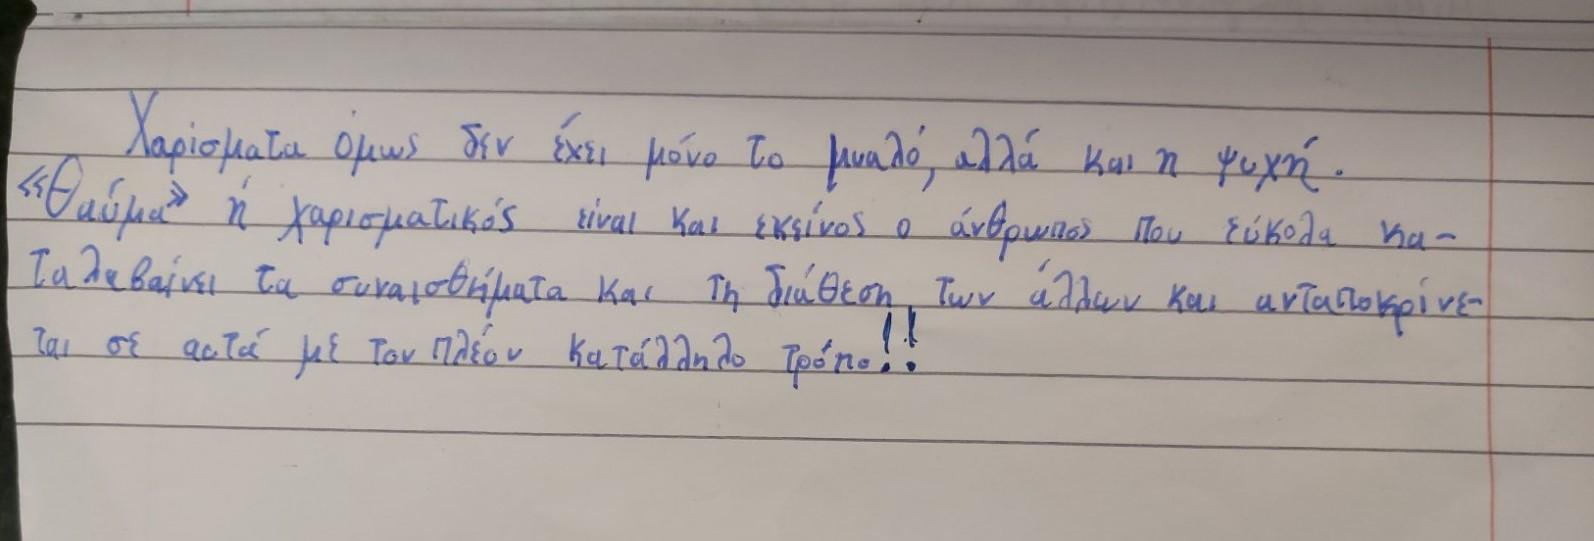 Χαρίσματα όμως δεν έχει μόνο το μυαλό, αλλά και η ψυχή.
«Θαύμα» ή χαρισματικός είναι και εκείνος ο άνθρωπος που εύκολα κα-
ταλαβαίνει τα συναισθήματα και τη διάθεση των άλλων και ανταποκρίνε-
ται σε αυτά με τον πλέον κατάλληλο τρόπο!!